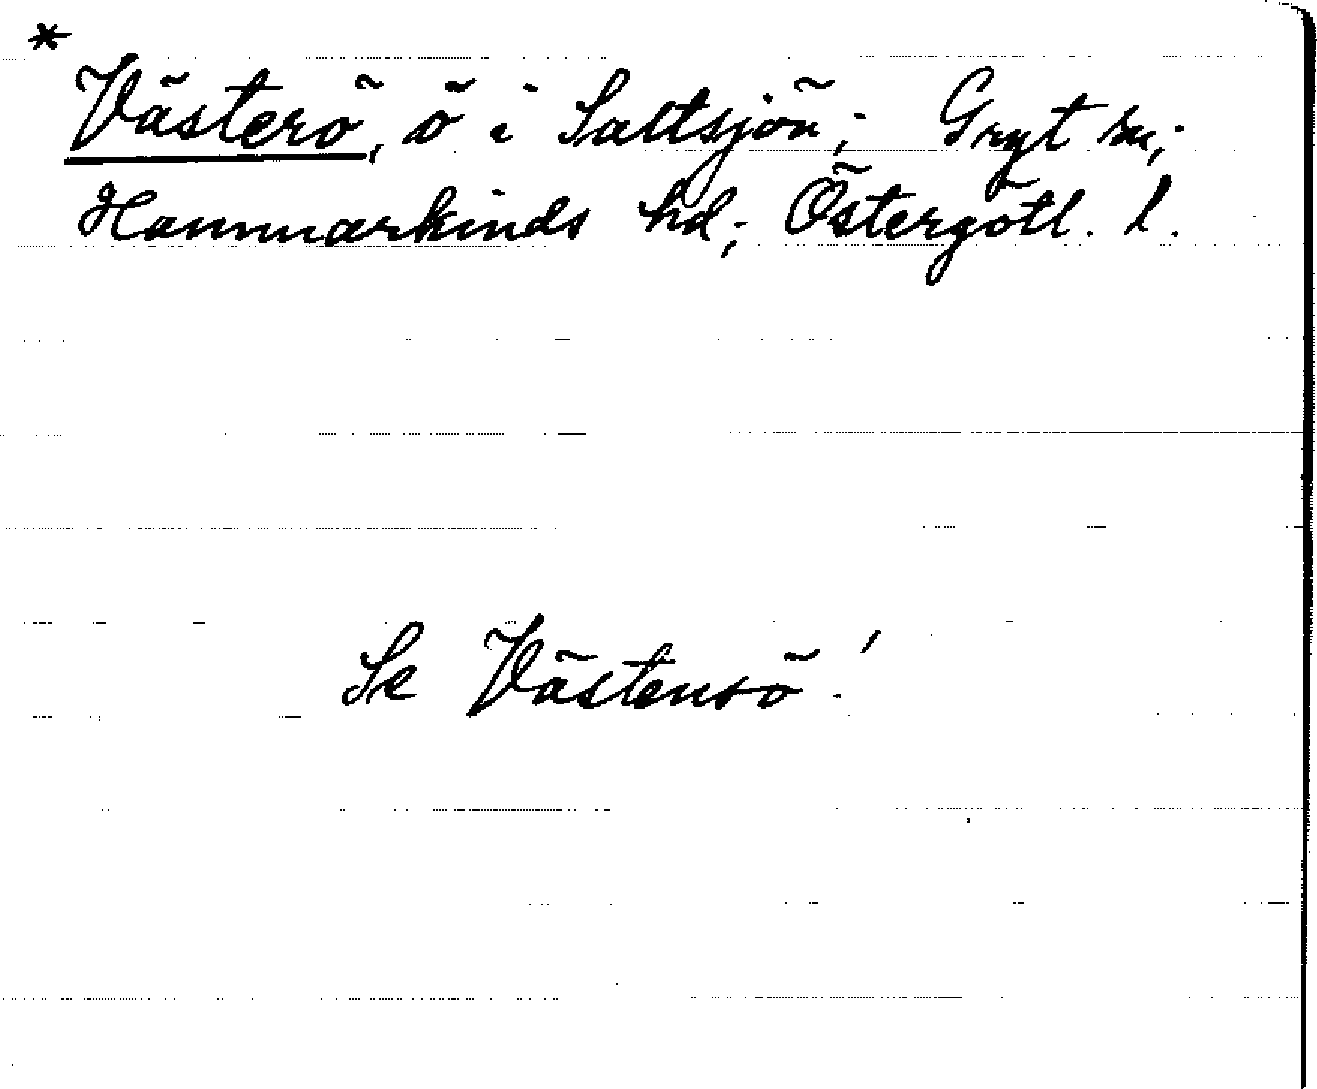 *
Västerö, ö i Saltsjön; Gryt sn;
Hammarkinds hd; Östergötl. l.
Se Västensö!